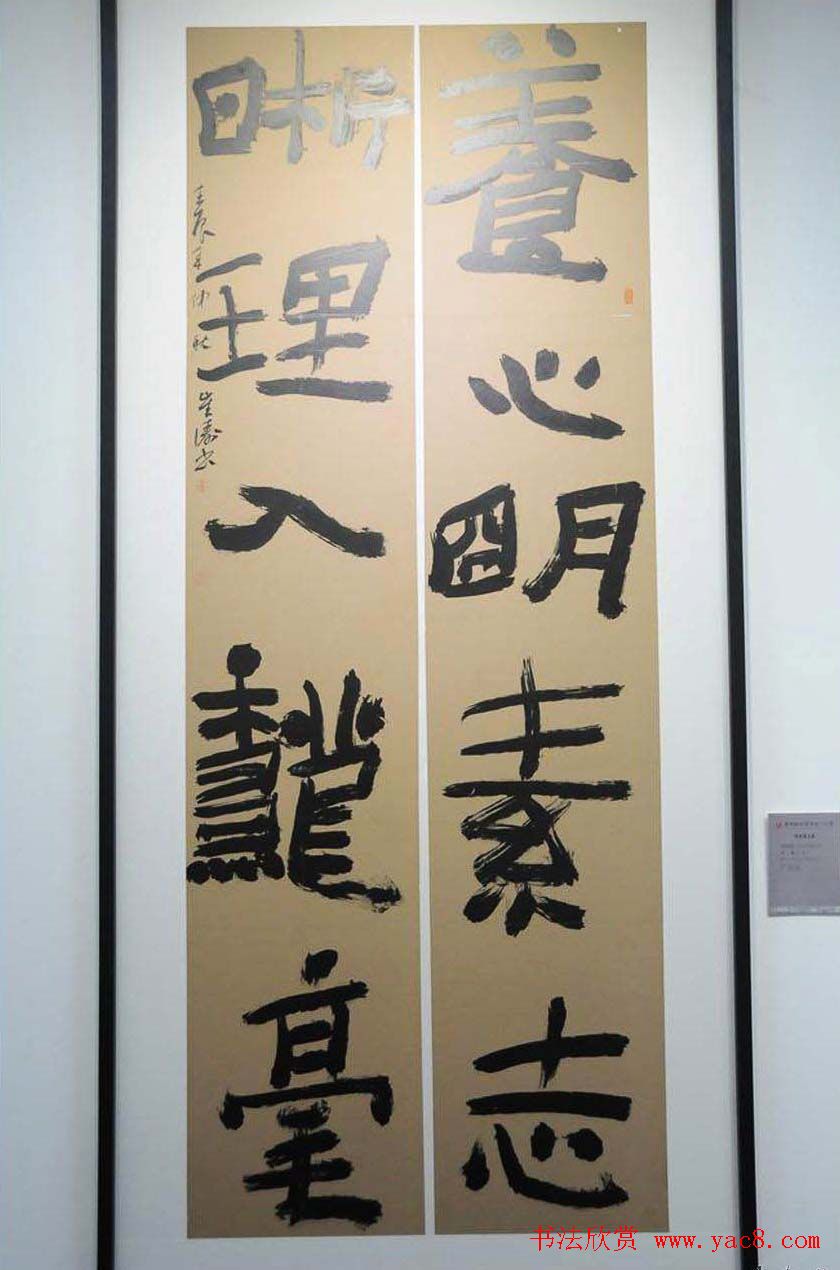 養心明素志
晰理入纖毫
壬辰年仲秋
崔濤书
书法欣赏 www.yac8.com